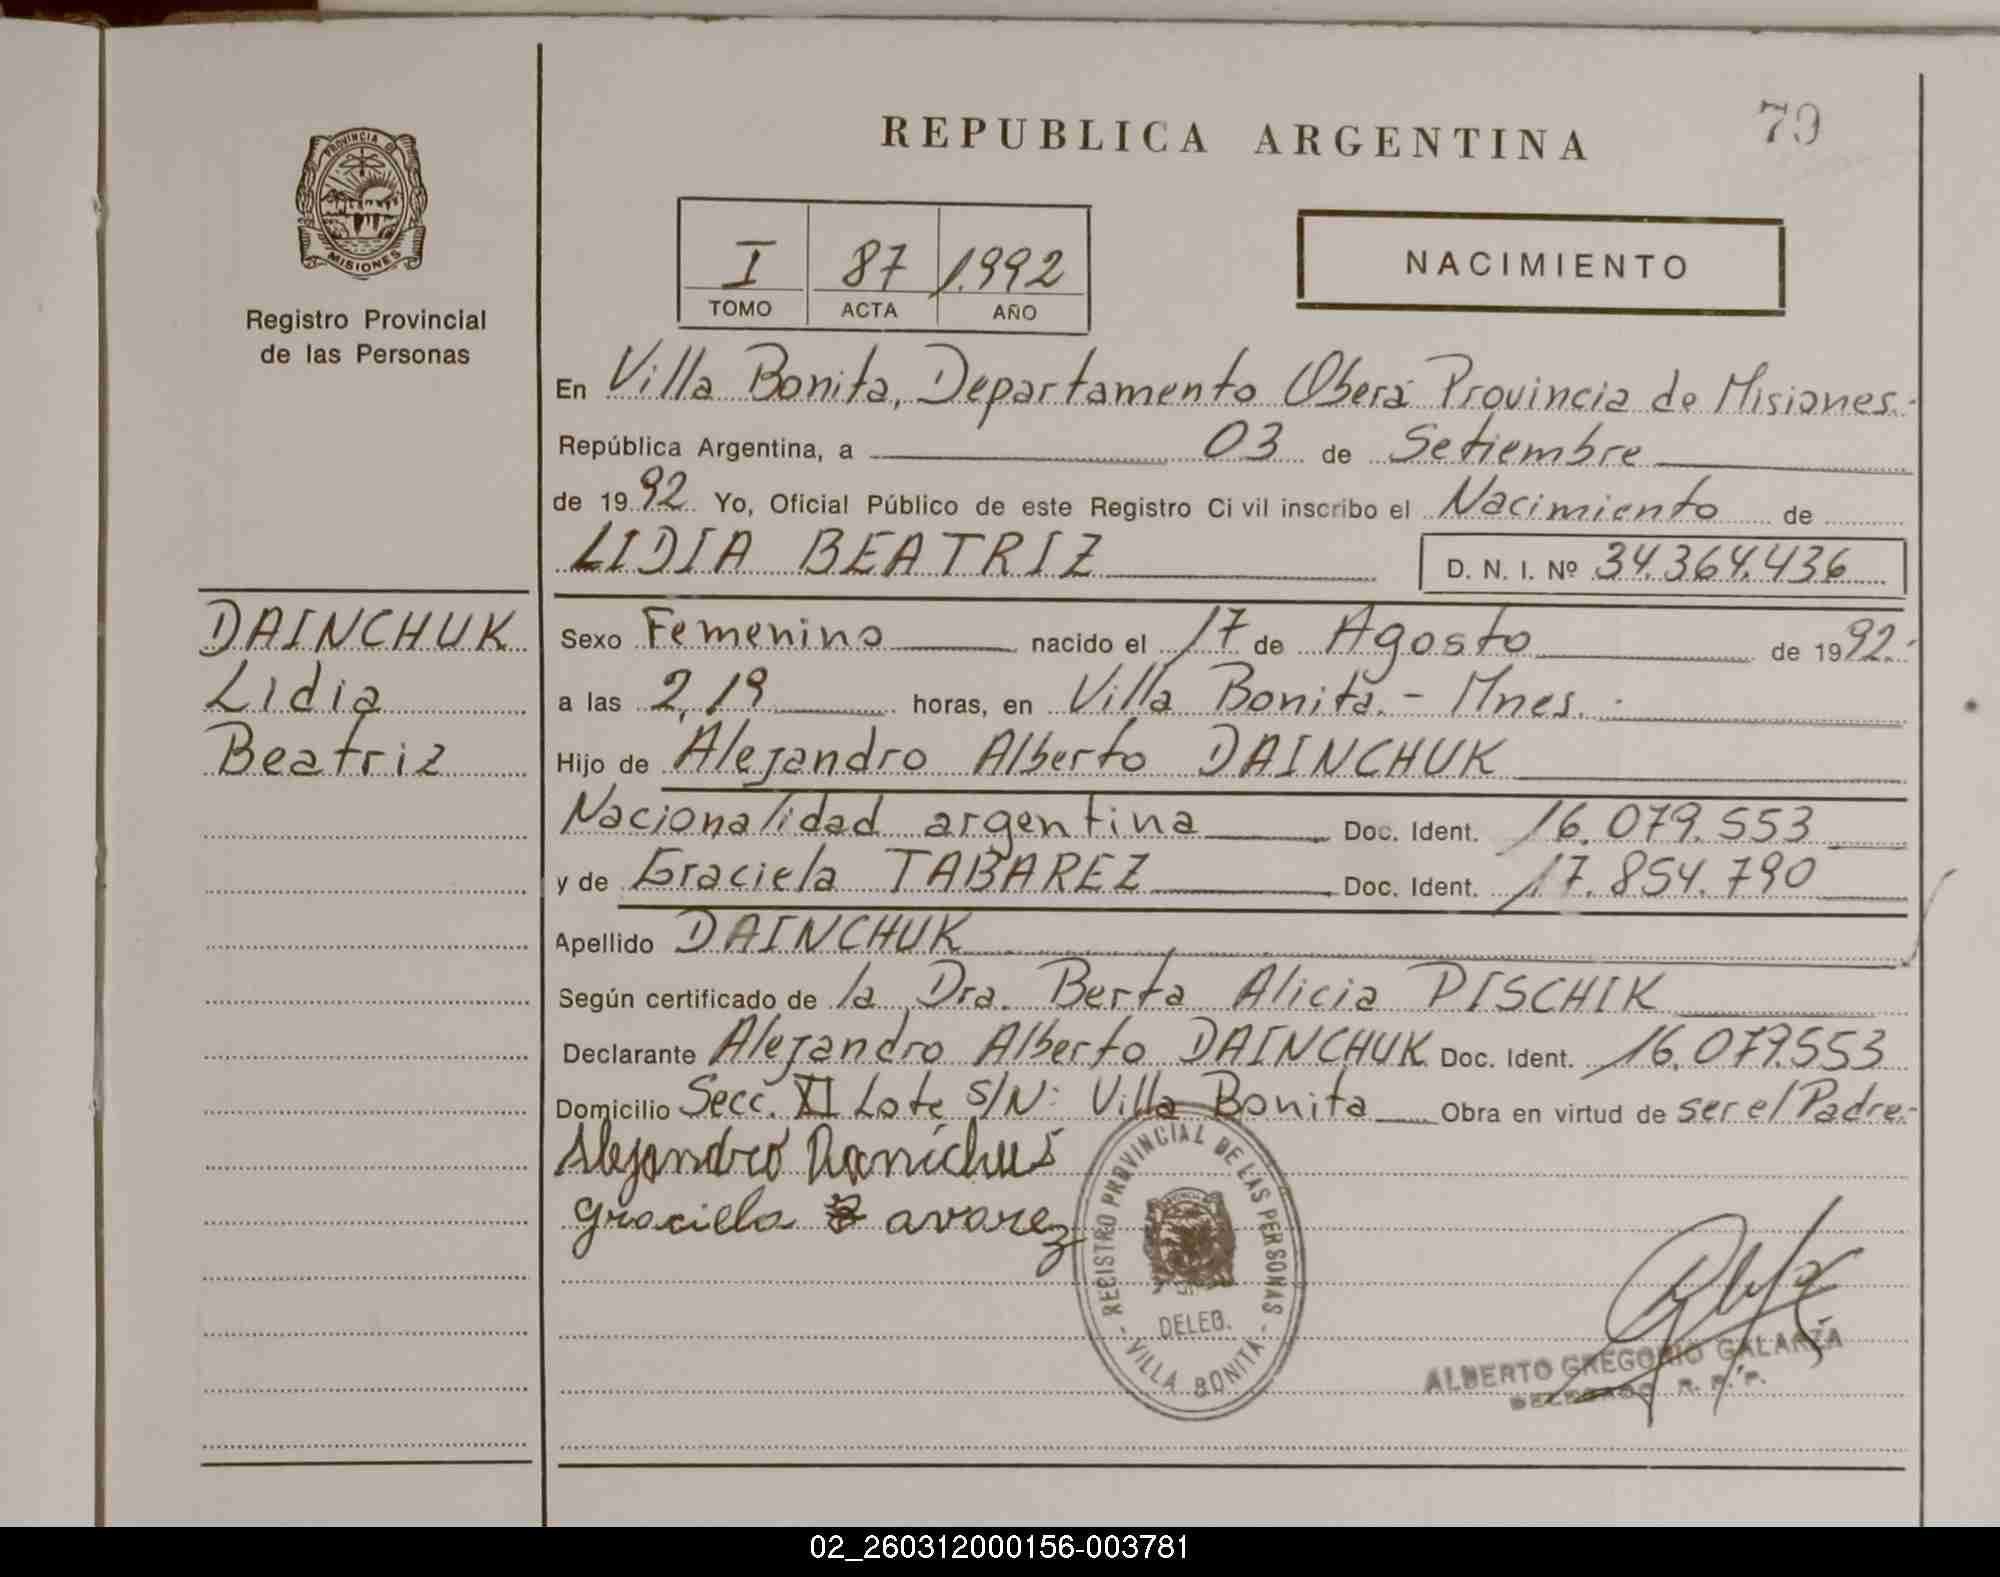 79
REPUBLICA ARGENTINA
PROVINCIA D
MISIONES
Registro Provincial
de las Personas
I 87 1.992
TOMO ACTA AÑO
NACIMIENTO
En Villa Bonita, Departamento Oberá Provincia de Misiones.-
República Argentina, a 03 de Setiembre
de 1992 Yo, Oficial Público de este Registro Civil inscribo el Nacimiento de
LIDIA BEATRIZ D. N. I. Nº 34.364.436
DAINCHUK
Lidia
Beatriz
Sexo Femenino nacido el 17 de Agosto de 1992.-
a las 2,19 horas, en Villa Bonita.- Mnes.-
Hijo de Alejandro Alberto DAINCHUK
Nacionalidad argentina Doc. Ident. 16.079.553
y de Graciela TABAREZ Doc. Ident. 17.854.790
Apellido DAINCHUK
Según certificado de la Dra. Berta Alicia PISCHIK
Declarante Alejandro Alberto DAINCHUK Doc. Ident. 16.079.553
Domicilio Secc. XI Lote S/N: Villa Bonita Obra en virtud de ser el Padre.-
Alejandro
graciela avarez
REGISTRO PROVINCIAL DE LAS PERSONAS
DELEG.
- VILLA BONITA -
ALBERTO GREGORIO GALARZA
DELEGADO R. P. P.
02_260312000156-003781